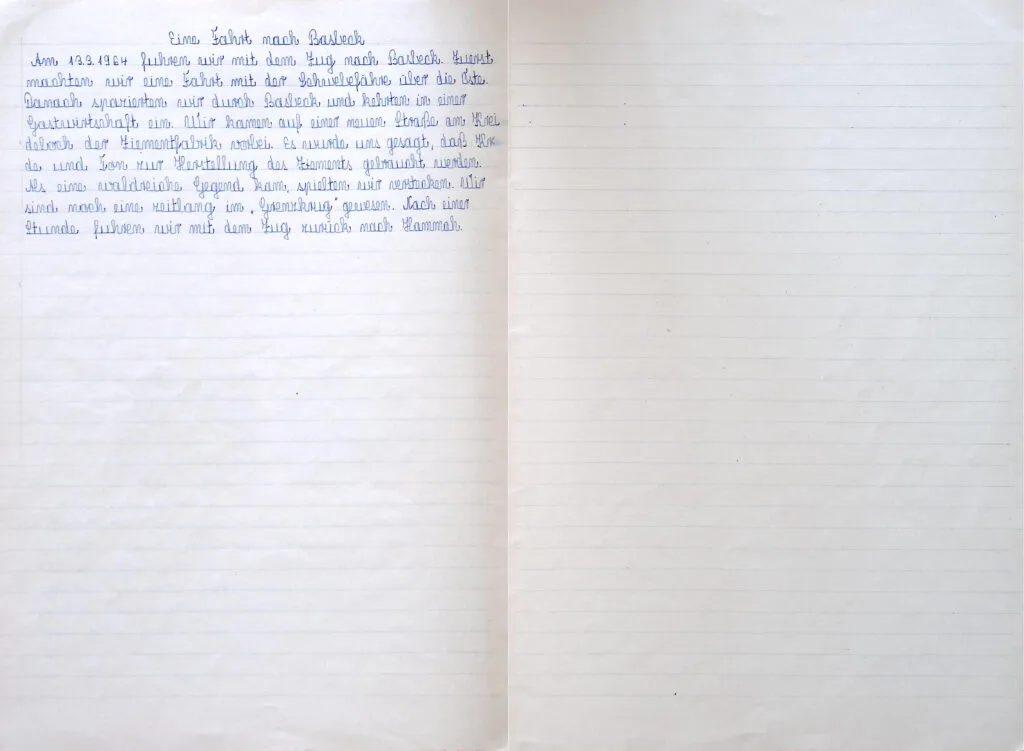 Eine Fahrt nach Basbeck
Am 13.3.1964 fuhren wir mit dem Zug nach Basbeck. Zuerst
machten wir eine Fahrt mit der Schwebefähre über die Oste.
Danach spazierten wir durch Basbeck und kehrten in einer
Gastwirtschaft ein. Wir kamen auf einer neuen Straße am Krei
deloch der Ziementfabrik vorbei. Es wurde uns gesagt, daß Krei
de und Ton zur Herstellung des Ziements gebraucht werden.
Als eine waldreiche Gegend kam, spielten wir verstecken. Wir
sind noch eine zeitlang im „Grenzkrug" gewesen. Nach einer
Stunde fuhren wir mit dem Zug zurück nach Hammah.